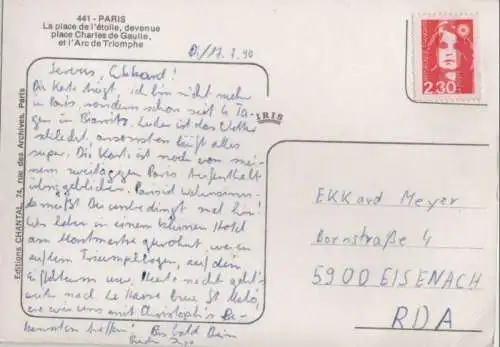 441 - PARIS
La place de l'étoile, devenue
place Charles de Gaulle,
et l'Arc de Triomphe
Di/17.7.90
Servus, Ekkard!
Die Karte trügt, ich bin nicht mehr
in Paris, sondern schon seit 4 Ta-
gen in Biarritz. Leider ist das Wetter
schlecht, ansonsten läuft alles
super. Die Karte ist noch von mei-
nem zweitägigen Paris Aufenthalt
übriggeblieben. Paris ist Wahnsinn.
Da mußt Du unbedingt mal hin!
Wir haben in einem kleinen Hotel
am Montmartre gewohnt, waren
auf dem Triumphbogen, auf dem
Eiffelturm usw. Heute nacht geht's
weiter nach
St Malo,
wo wir uns mit Christoph's Be-
kannten treffen! Bis bald Dein
Editions CHANTAL, 74, rue des Archives, Paris
IRIS
2,30
EKKard Meyer
Bornstraße 4
5900 EISENACH
RDA